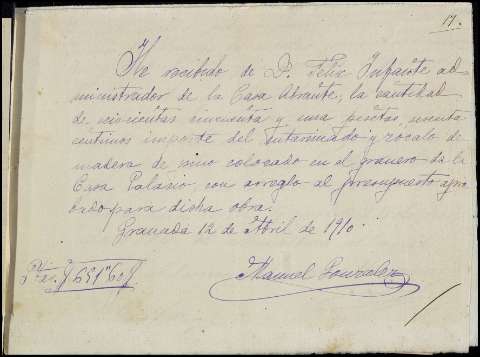 17.
He recibido de D. Felix Infante ad-
ministrador de la Casa Abrante, la cantidad
de
cincuenta y una pesetas,
centimos importe del entarimado y zocalo de
madera de pino colocado en el granero de la
Casa Palacio, con arreglo al presupuesto apro
bado para dicha obra.
Granada 12 de Abril de 1910.
Manuel Gonzalez